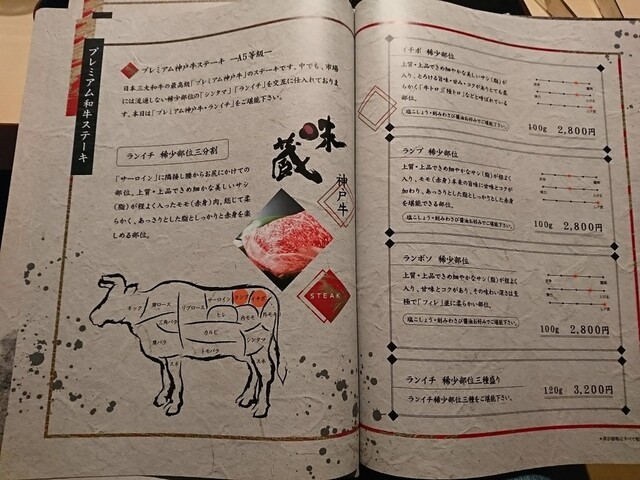 プレミアム和牛ステーキ
プレミアム神戸牛ステーキ ―A5等級―
日本三大和牛の最高級「プレミアム神戸牛」のステーキです。中でも、市場
には流通しない稀少部位の「シンタマ」「ランイチ」を交互に仕入れておりま
す。本日は「プレミアム神戸牛・ランイチ」をご堪能下さい。
味蔵
神戸牛
ランイチ 稀少部位三分割
「サーロイン」に隣接し腰からお尻にかけての
部位。上質・上品できめ細かな美しいサシ
(脂)が程よく入ったモモ(赤身)肉。総じて柔
らかく、あっさりとした脂としっかりと赤身を楽
しめる部位。
STEAK
ネック
肩ロース
リブロース
サーロイン
ランプ
イチボ
ヒレ
内モモ
外モモ
カルビ
肩バラ
シンタマ
トモバラ
スネ
スネ
イチボ 稀少部位
上質・上品できめ細かな美しいサシ(脂)が程よく
入り、とろける旨味・甘み・コクがありとても柔らかく
「牛トロ」「極トロ」などと呼ばれている
部位。
塩こしょう・刻みわさび醤油お好みでご堪能下さい。
100g 2,800円
ランプ 稀少部位
上質・上品できめ細やかなサシ(脂)が程よく
入り、モモ(赤身)本来の旨味に甘味とコクが
加わり、あっさりとした脂としっかりとした赤身
を堪能できる部位。
塩こしょう・刻みわさび醤油お好みでご堪能下さい。
100g 2,800円
ランボソ 稀少部位
上質・上品できめ細やかなサシ(脂)が程よく
入り、甘味とコクがあり、その味わい深さは至
極で「フィレ」並に柔らかい部位。
塩こしょう・刻みわさび醤油お好みでご堪能下さい。
100g 2,800円
ランイチ 稀少部位三種盛り
120g 3,200円
ランイチ稀少部位三種をご堪能下さい。